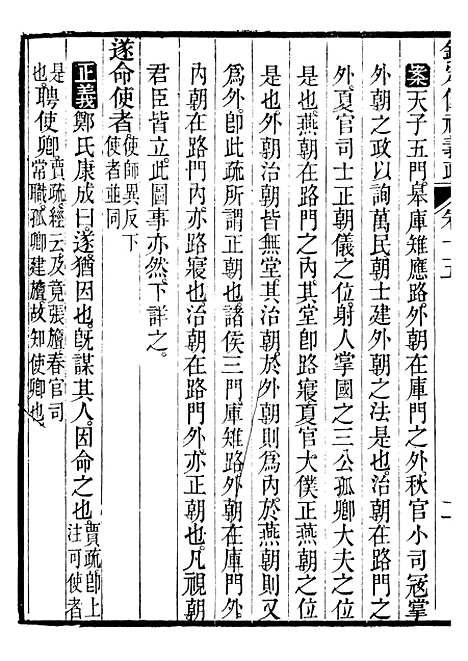 案天子五門皋庫雉應路外朝在庫門之外秋官小司寇掌
外朝之政以詢萬民朝士建外朝之法是也治朝在路門之
外夏官司士正朝儀之位射人掌國之三公孤卿大夫之位
是也燕朝在路門之內其堂卽路寢夏官大僕正燕朝之位
是也外朝治朝皆無堂其治朝於外朝則爲內於燕朝則又
爲外卽此疏所謂正朝也諸侯三門庫雉路外朝在庫門外
內朝在路門內亦路寢也治朝在路門外亦正朝也凡視朝
君臣皆立此圖事亦然下詳之
遂命使者使者並同使异反下
正義鄭氏康成曰遂猶因也旣謀其人因命之也賈疏卽上注可使者
是也聘使卿賈疏經云及竟張旜春官司常職孤卿建旜故知使卿也